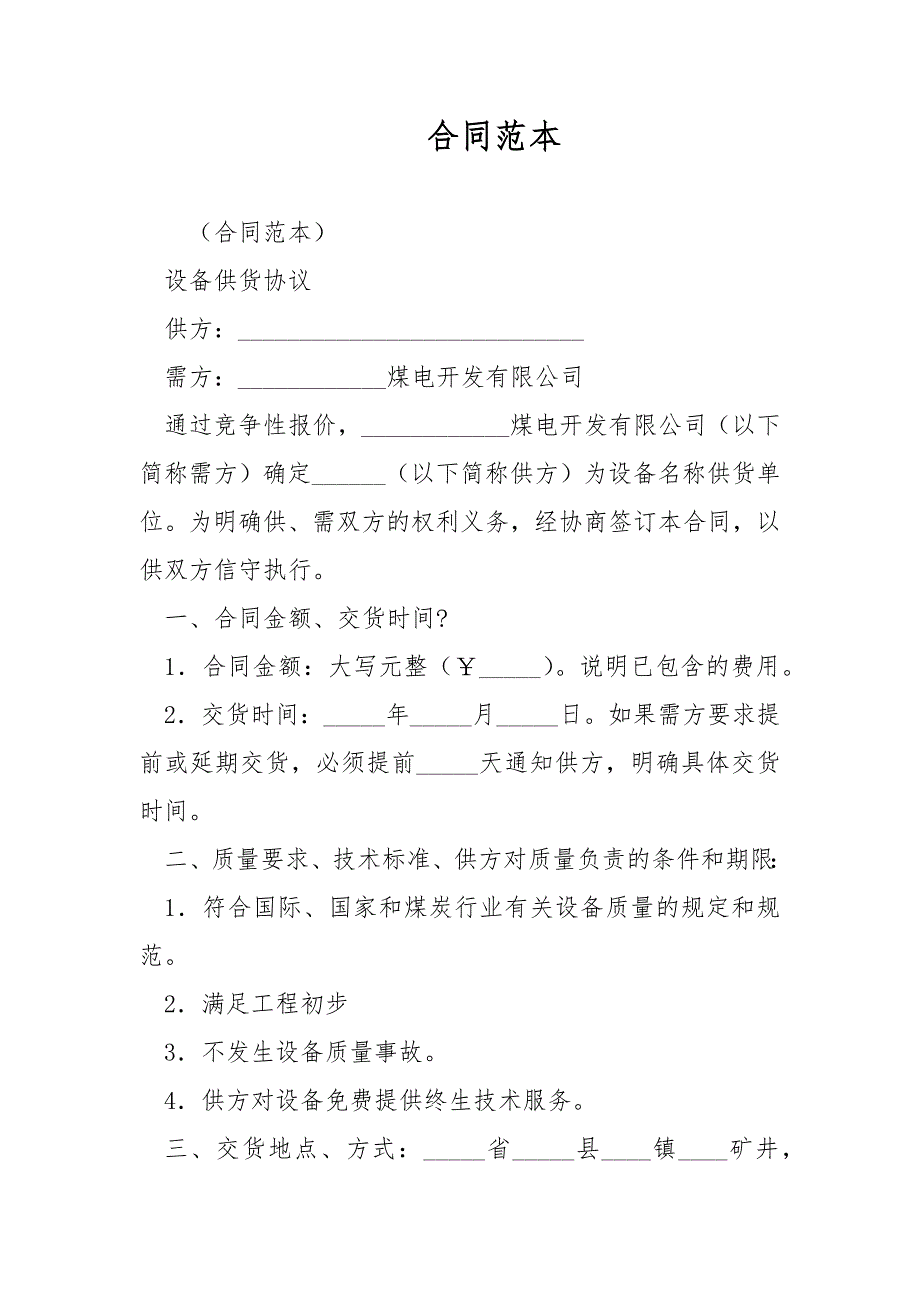 合同范本
（合同范本）
设备供货协议
供方：____________________________
需方：____________煤电开发有限公司
通过竞争性报价，____________煤电开发有限公司（以下
简称需方）确定______（以下简称供方）为设备名称供货单
位。为明确供、需双方的权利义务，经协商签订本合同，以
供双方信守执行。
一、合同金额、交货时间?
1．合同金额：大写元整（￥_____）。说明已包含的费用。
2．交货时间：_____年_____月_____日。如果需方要求提
前或延期交货，必须提前_____天通知供方，明确具体交货
时间。
二、质量要求、技术标准、供方对质量负责的条件和期限：
1．符合国际、国家和煤炭行业有关设备质量的规定和规
范。
2．满足工程初步
3．不发生设备质量事故。
4．供方对设备免费提供终生技术服务。
三、交货地点、方式：_____省_____县____镇____矿井，